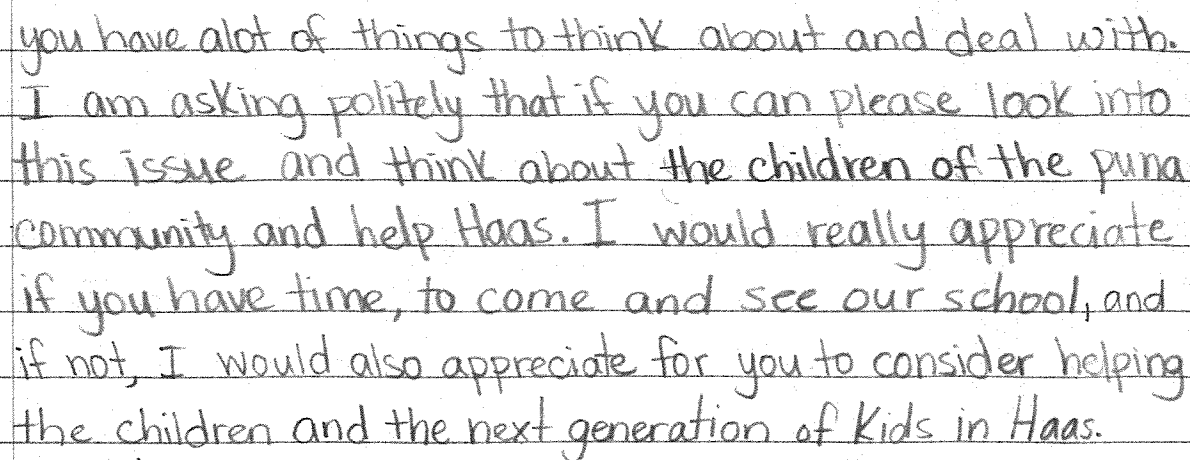 you have alot of things to think about and deal with.
I am asking politely that if you can please look into
this issue and think about the children of the puna
community and help Haas. I would really appreciate
if you have time, to come and see our school, and
if not, I would also appreciate for you to consider helping
the children and the next generation of kids in Haas.